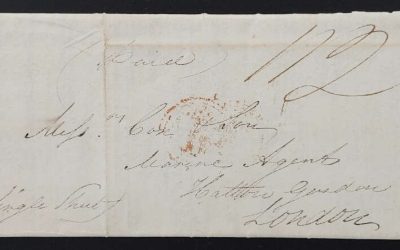 Paid
1/2
Messrs Cox & Son
Marine Agents
Hatton Garden
London
Single Sheet